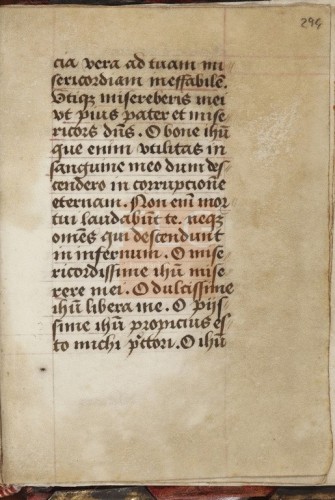 294
cia vera ad tuam mi
sericordiam ineffabilē.
Vtiqꝫ misereberis mei
vt pius pater et mise
ricors dn̄s. O bone ihū
que enim vtilitas in
sanguine meo dum des
cendero in corruptionē
eternam. Non em̄ mor
tui laudabūt te. neqꝫ
omēs qui descendunt
in infernum. O mise
ricordissime ihū mise
rere mei. O dulcissime
ihū libera me. O pijs
sime ihū propicius es
to michi pctōri. O ihū